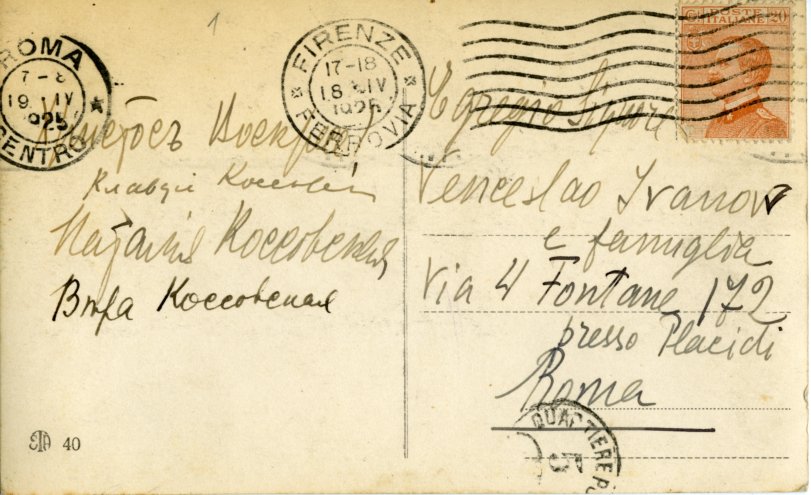 1
ROMA
CENTRO
7-8
19. IV
1925
FIRENZE
FERROVIA
17-18
18 IV
1925
POSTE
ITALIANE
20
Христосъ Воскресъ!
Клавдія
Наталія Коссовская
Вѣра Коссовская
Egregio Signore
Venceslao Ivanov
e famiglia
Via 4 Fontane 172
presso Placidi
Roma
QUARTIERE P
5
40